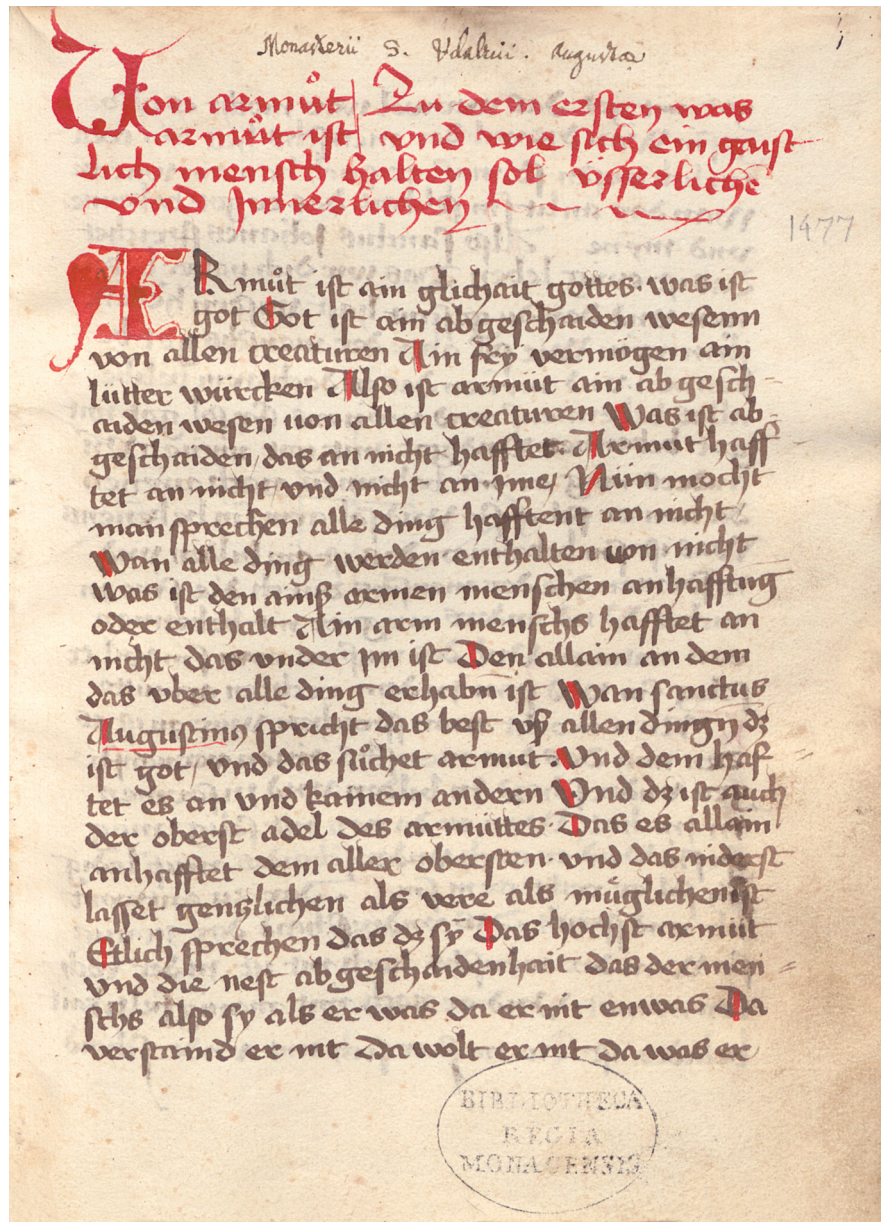 Monasterii S. Vdalrici. Augustae
Von armůt Zu dem ersten was
armůt ist vnd wie sich ein gaist
lich mensch halten sol vsserlichē
vnd Jnnerlichen
1477
ARmůt ist ain glichait gottes. was ist
got Got ist ain ab geschaiden wesenn
von allen creaturen Ain fry vermögen ain
lütter würcken Also ist armüt ain ab gesch-
aiden wesen uon allen creaturen Was ist ab-
geschaiden, das an nicht hafftet. Armut haff
tet an nicht vnd nicht an ime, Nün mocht
man sprechen alle ding hafftent an nicht
Wan alle ding werden enthalten uon nicht
was ist den ainß armen menschen anhafftūg
oder enthalt Ain arm menschs hafftet an
nicht das vnder Jm ist Den allain an dem
das vber alle ding erhabn̄ ist Wan sanctus
Augustinꝰ spricht das best vß allen dingn̄ dz
ist got, vnd das sůchet armut. Vnd dem haf-
tet es an vnd kainem andern Vnd dz ist auch
der oberst adel des armüttes. Das es allain
anhafftet dem aller obersten. vnd das niderst
lasset gentzlichen als vere als müglichen ist
Etlich sprechen das dz sÿ Das hochst armüt
vnd die nest abgeschaidenhait das der men-
schs also sy als er was da er nit enwas Da
verstaind er nit Da wolt er nit da was er
BIBLIOTHECA
REGIA
MONACENSIS